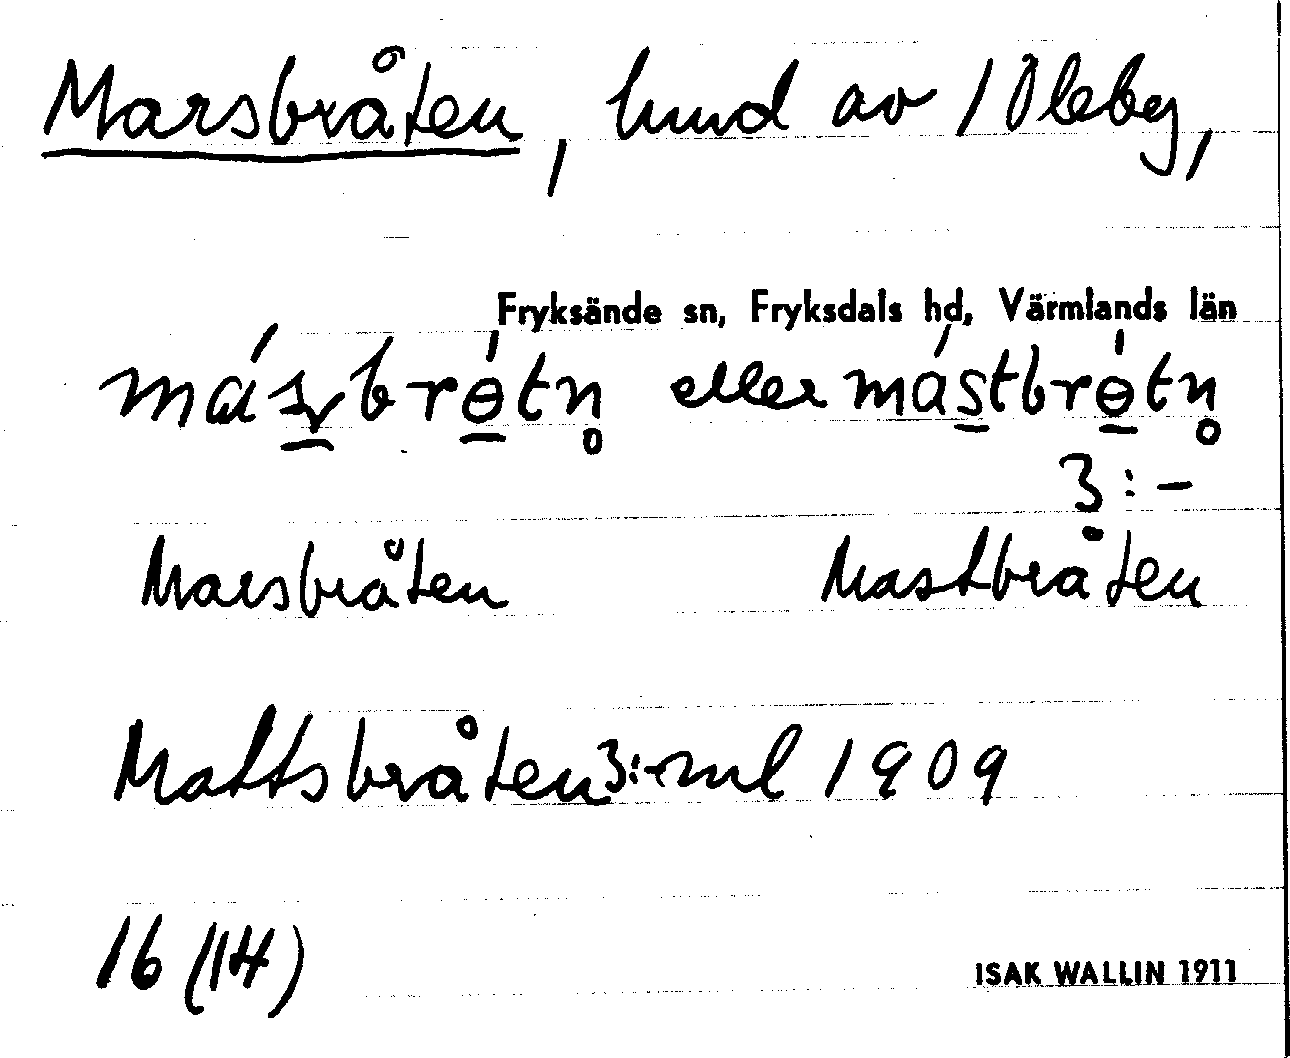 Marsbråten, hmd av 1 Oleby,
Fryksände sn, Fryksdals hd, Värmlands län
eller
3:-
Marsbråten Mastbråten
Mattsbråten 3:-ml 1909
16 (14)
ISAK WALLIN 1911